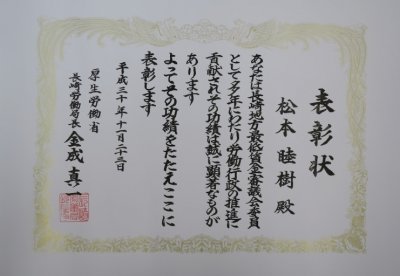 表彰状
松本睦樹殿
あなたは長崎地方最低賃金審議会委員
として多年にわたり労働行政の推進に
貢献されその功績は誠に顕著なものが
あります
よってその功績をたたえここに
表彰します
平成三十年十一月二十三日
厚生労働省
長崎労働局長 金成真一